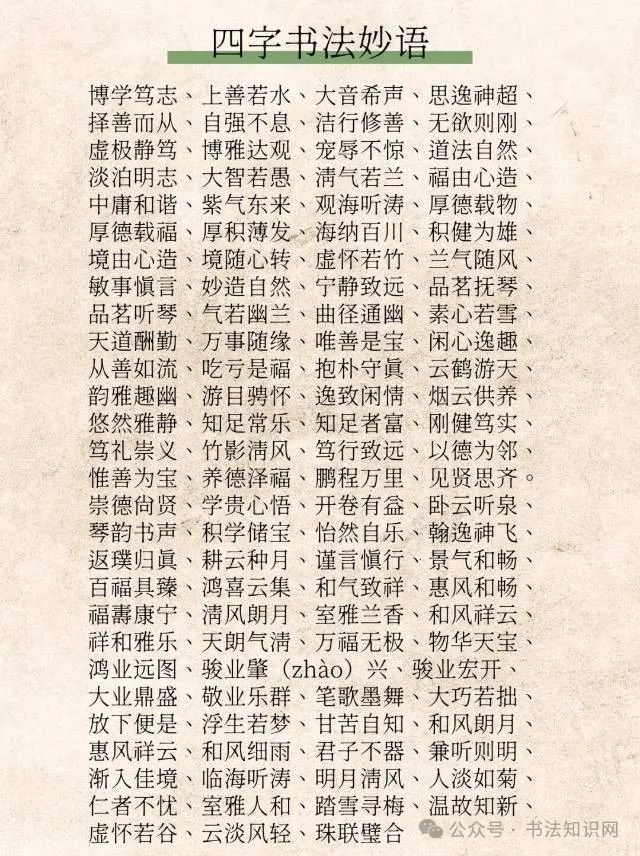 四字书法妙语
博学笃志、上善若水、大音希声、思逸神超、
择善而从、自强不息、洁行修善、无欲则刚、
虚极静笃、博雅达观、宠辱不惊、道法自然、
淡泊明志、大智若愚、清气若兰、福由心造、
中庸和谐、紫气东来、观海听涛、厚德载物、
厚德载福、厚积薄发、海纳百川、积健为雄、
境由心造、境随心转、虚怀若竹、兰气随风、
敏事慎言、妙造自然、宁静致远、品茗抚琴、
品茗听琴、气若幽兰、曲径通幽、素心若雪、
天道酬勤、万事随缘、唯善是宝、闲心逸趣、
从善如流、吃亏是福、抱朴守真、云鹤游天、
韵雅趣幽、游目骋怀、逸致闲情、烟云供养、
悠然雅静、知足常乐、知足者富、刚健笃实、
笃礼崇义、竹影清风、笃行致远、以德为邻、
惟善为宝、养德泽福、鹏程万里、见贤思齐。
崇德尚贤、学贵心悟、开卷有益、卧云听泉、
琴韵书声、积学储宝、怡然自乐、翰逸神飞、
返璞归真、耕云种月、谨言慎行、景气和畅、
百福具臻、鸿喜云集、和气致祥、惠风和畅、
福寿康宁、清风朗月、室雅兰香、和风祥云、
祥和雅乐、天朗气清、万福无极、物华天宝、
鸿业远图、骏业肇（zhào）兴、骏业宏开、
大业鼎盛、敬业乐群、笔歌墨舞、大巧若拙、
放下便是、浮生若梦、甘苦自知、和风朗月、
惠风祥云、和风细雨、君子不器、兼听则明、
渐入佳境、临海听涛、明月清风、人淡如菊、
仁者不忧、室雅人和、踏雪寻梅、温故知新、
虚怀若谷、云淡风轻、珠联璧合
公众号·书法知识网